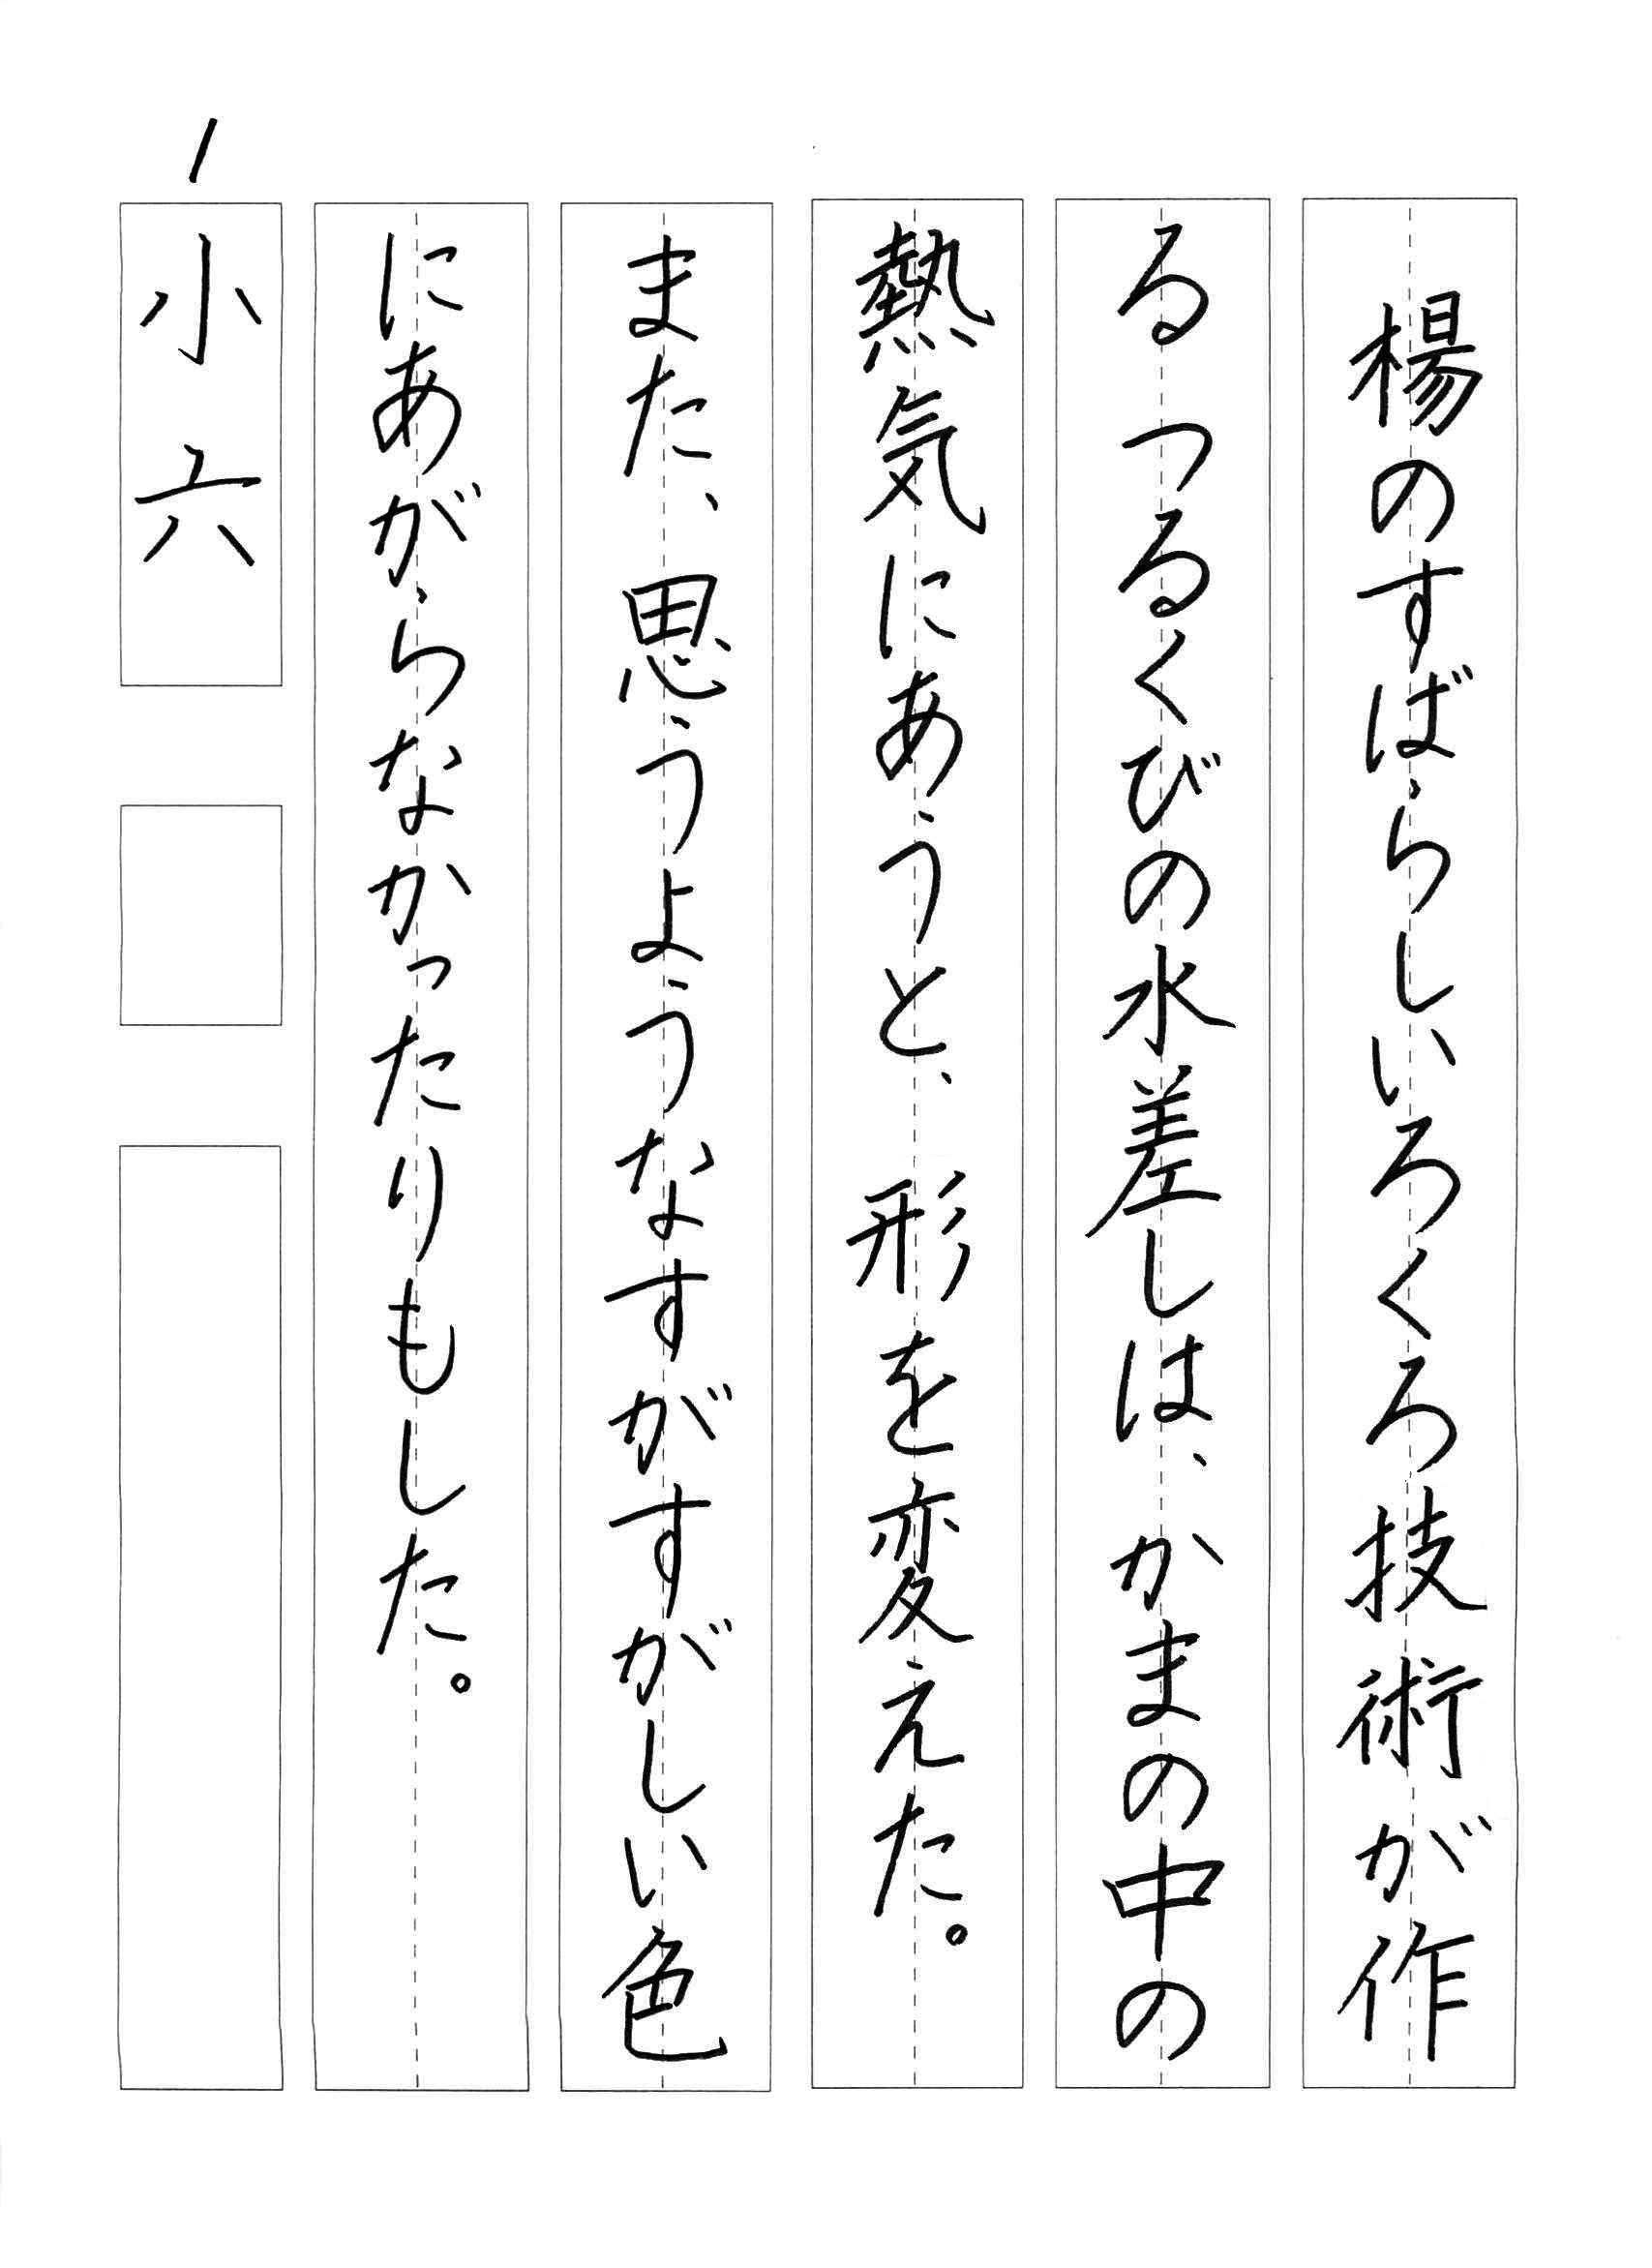 楊のすばらしいろくろ技術が作
る つるくびの水差しは、かまの中の
熱気にあうと、形を変えた。
また、思うようなすがすがしい色
にあがらなかったりもした。
小六